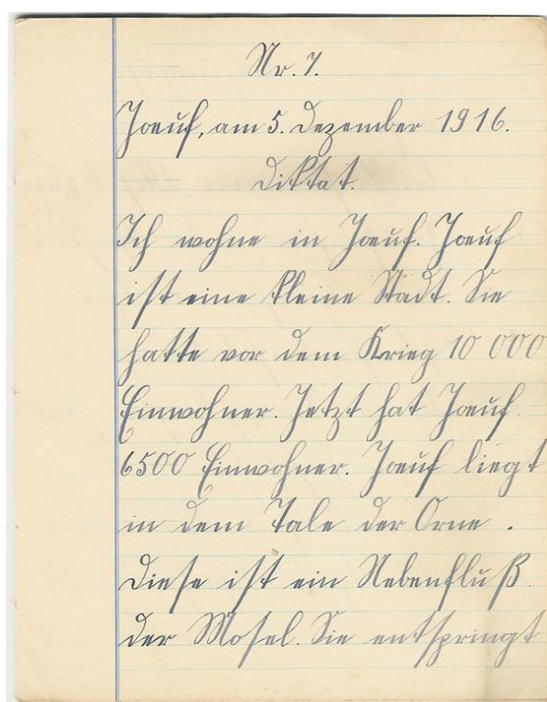 Nr. 7.
Joeuf, am 5. Dezember 1916.
Diktat.
Ich wohne in Joeuf. Joeuf
ist eine kleine Stadt. Sie
hatte vor dem Krieg 10 000
Einwohner. Jetzt hat Joeuf
6500 Einwohner. Joeuf liegt
in dem Tale der Orne.
Diese ist ein Nebenfluß
der Mosel. Sie entspringt